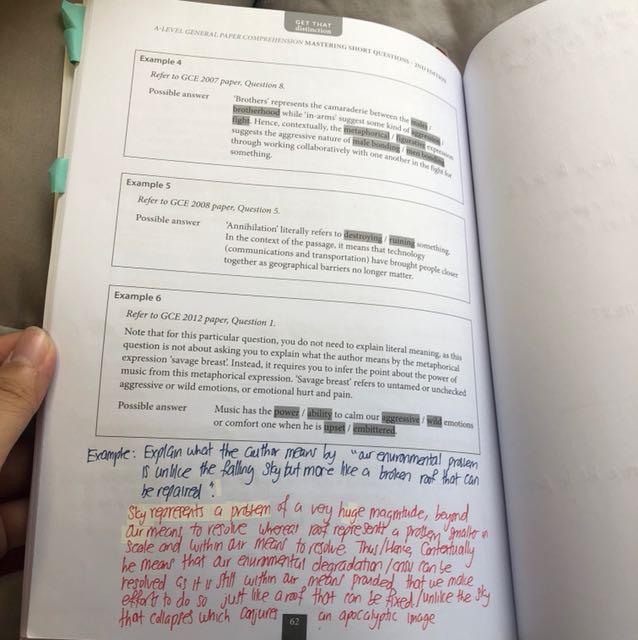 GET THAT
distinction
A-LEVEL GENERAL PAPER COMPREHENSION MASTERING SHORT QUESTIONS - 2ND EDITION
Example 4
Refer to GCE 2007 paper, Question 8.
Possible answer
'Brothers' represents the camaraderie between the males /
brotherhood while 'in-arms' suggest some kind of aggression /
fight. Hence, contextually, the metaphorical / figurative expression
suggests the aggressive nature of male bonding / men bonding
through working collaboratively with one another in the fight for
something.
Example 5
Refer to GCE 2008 paper, Question 5.
Possible answer
'Annihilation' literally refers to destroying / ruining something.
In the context of the passage, it means that technology
(communications and transportation) have brought people closer
together as geographical barriers no longer matter.
Example 6
Refer to GCE 2012 paper, Question 1.
Note that for this particular question, you do not need to explain literal meaning, as this
question is not about asking you to explain what the author means by the metaphorical
expression 'savage breast'. Instead, it requires you to infer the point about the power of
music from this metaphorical expression. 'Savage breast' refers to untamed or unchecked
aggressive or wild emotions, or emotional hurt and pain.
Possible answer
Music has the power / ability to calm our aggressive / wild emotions
or comfort one when he is upset / embittered.
Example: Explain what the author means by "our environmental problem
is unlike the falling sky but more like a broken roof that can
be repaired"
Sky represents a problem of a very huge magnitude, beyond
our means to resolve whereas roof represents a problem smaller in
scale and within our means to resolve. Thus/Hence, Contextually
he means that our environmental degradation / can be
resolved as it is still within our means provided that we make
effort to do so just like a roof that can be fixed/unlike the sky
that collapses which conjures an apocalyptic image
62